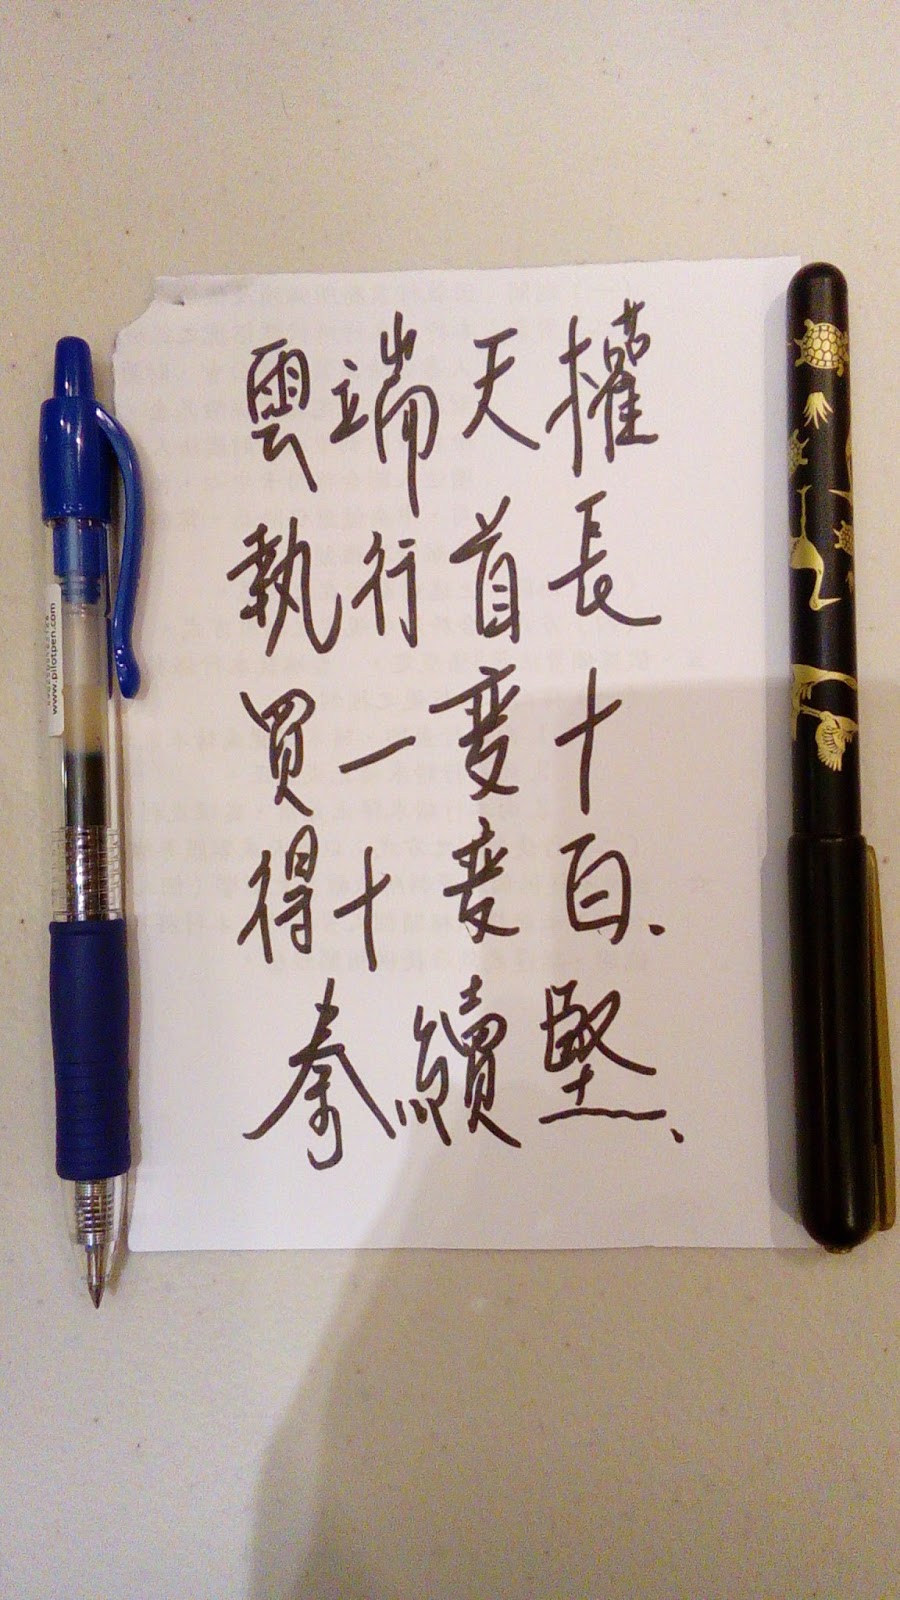 雲端天權
執行首長
買一變十
得十變百、
秦續堅、
www.pilotpen.com